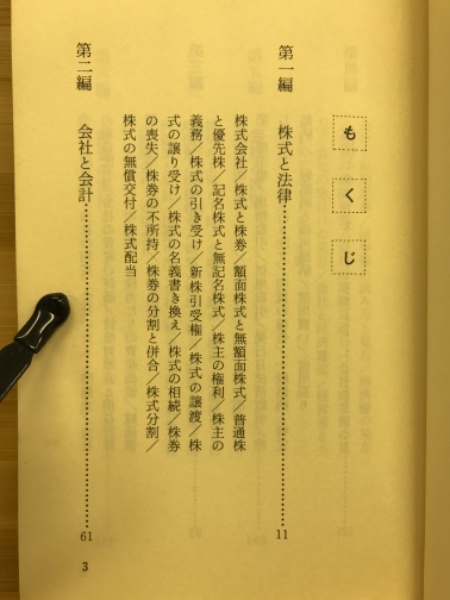 もくじ
第一編 株式と法律……………………………11
株式会社／株式と株券／額面株式と無額面株式／普通株
と優先株／記名株式と無記名株式／株主の権利／株主の
義務／株式の引き受け／新株引受権／株式の譲渡／株
式の譲り受け／株式の名義書き換え／株式の相続／株券
の喪失／株券の不所持／株券の分割と併合／株式分割／
株式の無償交付／株式配当
第二編 会社と会計……………………………61
3